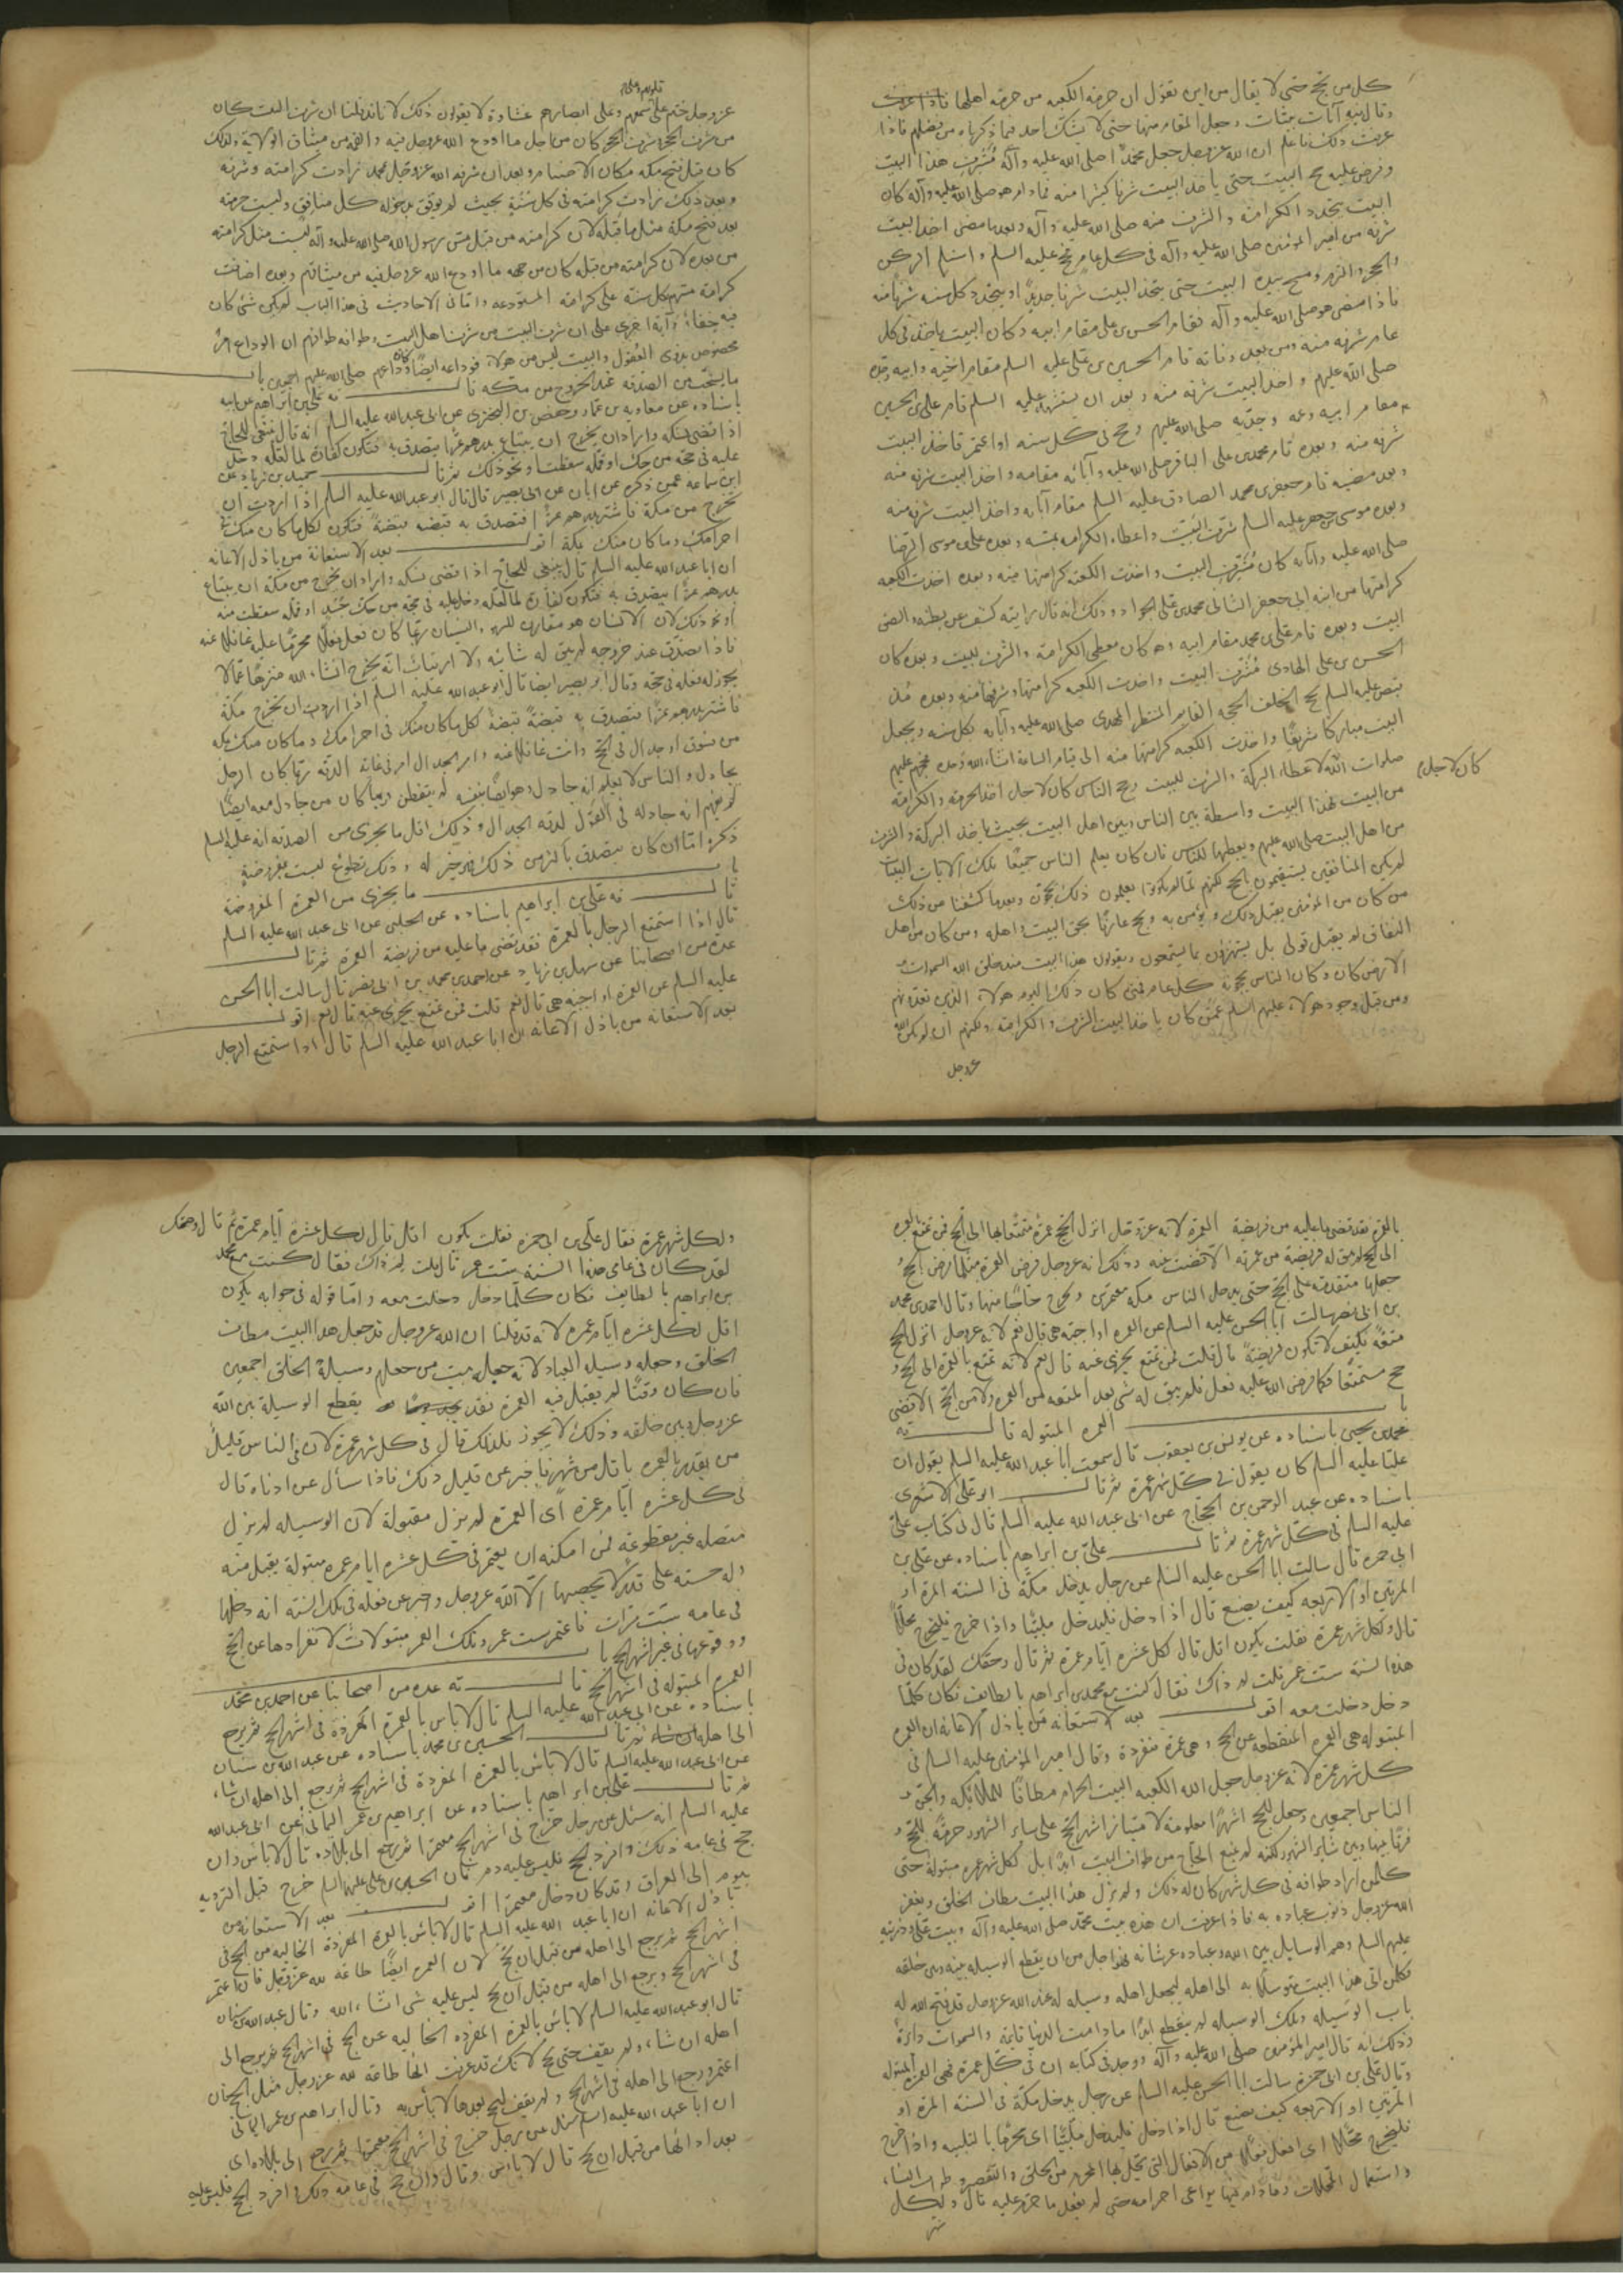 كل من يحج حتى لا يقال من اين تقول ان حرمة الكعبه من حرمة اهلها
وقال فيه آيات بينات وجعل المقام منها حتى لا يشك احد فيما ذكرناه من فضلهم فاذا
عرفت ذلك فاعلم ان الله عزوجل جعل محمدا صلى الله عليه وآله مُشَرِّف هذا البيت
وفرض عليه حج البيت حتى ياخذ البيت شرفا كثيرا منه فمادام هو صلى الله عليه وآله كان
البيت يتجدد الكرامة والشرف منه صلى الله عليه وآله وبعد ما مضى اخذ البيت
شرفه من امير المؤمنين صلى الله عليه وآله في كل عام حج عليه السلم واستلم الركن
والحجر ومسح بيده البيت حتى يتخذ البيت شرفا جديدًا او يتجدد كل سنه شرفا منه
فاذا مضى هو صلى الله عليه وآله فقام الحسن بن على مقام ابيه وكان البيت ياخذ في كل
عام شرفه منه ومن بعد وفاته قام الحسين بن على عليه السلم مقام اخيه وابيه وجده
صلى الله عليهم واخذ البيت شرفه منه وبعد ان عليه السلم قام على بن الحسين
مقام ابيه وعمه وجديه صلى الله عليهم وحج في كل سنه او اعتمر فاخذ البيت
شرفه منه وبعده قام محمد بن على الباقر صلى الله عليه وآبائه مقامه واخذ البيت شرفه منه
وبعد مضيه قام جعفر بن محمد الصادق عليه السلم مقام آبائه واخذ البيت شرفه منه
وبعده موسى بن جعفر عليه السلم شرّف البيت واعطاء الكرامه وبعده على بن موسى الرضا
صلى الله عليه وآبائه كان مُشَرِّف البيت واخذت الكعبة كرامتها منه وبعده اخذت الكعبه
كرامتها من ابنه ابى جعفر الثانى محمد بن على الجواد وذلك انه قال رايته كشف عن بطنه والصق
البيت وبعده قام على بن محمد مقام ابيه وكان معطى الكرامة والشرف للبيت وبعده كان
الحسن بن على الهادى مُشَرِّف البيت واخذت الكعبه كرامتها وشرفها منه وبعده
عليه السلم حج الخلف الحجه القايم المنتظر المهدى صلى الله عليه وآبائه كل سنه ويجعل
البيت مباركا شريفًا واخذت الكعبه كرامتها منه الى قيام الساعة انشاء الله عليهم
صلوات الله لاعطاء البركة والشرف للبيت وحج الناس كان لاجل اخذ الحرمة والكرامة
كان لاجل
من البيت فهذا البيت واسطة بين الناس وبين اهل البيت بحيث ياخذ البركة والشرف
من اهل البيت صلى الله عليهم ويعطيها للناس فان كان يعلم الناس جميعًا تلك الآيات البينات
لم يكن المنافقين يستقيمون بالحج لكنهم لما لم يكونوا يعلمون ذلك يحجون وبعد ما كشفنا عن ذلك
من كان من المؤمنين يقبل ذلك ويؤمن به ويحج عارفًا بحق البيت واهله ومن كان من اهل
النفاق لم يقبل قولى بل يستهزؤن بما يستمعون ويقولون هذا البيت منذ خلق الله السموات
الارض كان وكان الناس يحجونه كل عام فمتى كان ذلك اليوم هولاء الذين تعدّونهم
ومن قبل وجود هولاء عليهم السلم عمّن كان ياخذ البيت الشرف والكرامة ولكنهم ان لم يكن الله
عزوجل
قلوبهم وعلى
عزوجل ختم على سمعهم وعلى ابصارهم غشاوة لا يقولون ذلك لانا قد قلنا ان شرف البيت كان
من شرف الحجر وشرف الحجر كان من اجل ما اودع الله عزوجل فيه والقمه من ميثاق الولاية ولذلك
كان قبل فتح مكه مكان الاصنام وبعد ان شرفه الله عزوجل بمحمد زادت كرامته وشرفه
وبعد ذلك زادت كرامته في كل سنة بحيث لم يوفق بدخوله كل منافق وليست حرمته
بعد فتح مكة مثل ما قبله لان كرامته من قبل مسّ رسول الله صلى الله عليه وآله ليست مثل كرامته
من بعده لان كرامته من قبله كان من جهه ما اودع الله عزوجل فيه من ميثاقهم وبعده اضافت
كرامة مسّهم كل سنة على كرامة المستودعه واتانى الاحاديث في هذا الباب لم يكن شئ كان
فيه خفاء وآية اخرى على ان شرف البيت من شرف اهل البيت وطوافه طوافهم ان الوداع امر
مخصوص بذوى العقول والبيت ليس من هولاء فوداعه ايضًا وداعهم صلى الله عليهم اجمعين باب
ما يستحب من الصدقه عند الخروج من مكه قال فه على بن ابراهيم عن ابيه
باسناده عن معاويه بن عمار وحفص بن البخترى عن ابى عبدالله عليه السلم انه قال ينبغى للحاج
اذا قضى نسكه واراد ان يخرج ان يبتاع بدرهم تمرًا يتصدق به فتكون كفارة لما لعله دخل
عليه في حجه من حكّ او قمله سقطت او نحو ذلك ثم قال حميد بن زياد عن
ابن سماعه عمن ذكره عن ابان عن ابى بصير قال قال ابو عبد الله عليه السلم اذا اردت ان
تخرج من مكة فاشتر بدرهم تمرًا فتصدق به قبضه قبضه فتكون لكل ما كان منك في
احرامك وما كان منك بمكة اقول بعد الاستعانة من باذل الاعانه
ان ابا عبد الله عليه السلم قال ينبغى للحاج اذا قضى نسكه واراد ان يخرج من مكة ان يبتاع
بدرهم تمرًا يتصدق به فتكون كفارة لما لعله دخل عليه في حجه من حك جسد او قمله سقطت منه
او نحو ذلك لان الانسان هو مقارن للسهو والنسيان ربما كان فعل فعلًا محرّمًا عليه غافلا عنه
فاذا تصدّق عند خروجه لم يبق له شائبه ولا ارتياب انه يخرج انشاء الله منزهًا عمّا لا
يجوز له فعله في حجه وقال ابو بصير ايضا قال ابو عبد الله عليه السلم اذا اردت ان تخرج مكة
فاشتر بدرهم تمرًا فتصدق به قبضةً قبضةً لكل ما كان منك في احرامك وما كان منك بمكه
من فسوق او جدال في الحج وانت غافلا عنه وامر الجدال امر في غاية الدقه ربما كان الرجل
يجادل والناس لا يعلم انه جادل وهو ايضًا بنفسه لم يتفطن وربما كان من جادل معه ايضًا
لم يفهم انه جادله في القول لدقه الجدال وذلك اقل ما يجزى من الصدقه انه عليه السلم
ذكره امّا ان كان يتصدق باكثر من ذلك فخير له وذلك تطوّع ليست بفريضةٍ
باب ما يجزى من العمرة المفروضة
قال فه على بن ابراهيم باسناده عن الحلبى عن ابى عبد الله عليه السلم
قال اذا استمتع الرجل بالعمرة فقد قضى ما عليه من فريضة العمرة ثم قال
عدة من اصحابنا عن سهل بن زياد عن احمد بن محمد بن ابى نصر قال سالت ابا الحسن
عليه السلم عن العمرة او اجبة هى قال نعم قلت فمن تمتع يجزى عنه قال نعم اقول
بعد الاستعانه من باذل الاعانه ان ابا عبد الله عليه السلم قال اذا استمتع الرجل
بالعمرة فقد قضى ما عليه من فريضة العمرة لانه عزوجل انزل الحج عمرة متمتعا بها الى الحج فمن تمتع بالعمره
الى الحج لم يبق له فريضة من عمرته الا قضت عنه وذلك انه عزوجل فرض العمرة مثلما فرض الحج و
جعلها متقدمة على الحج حتى يدخل الناس مكه معتمرين ويخرج حاجًا منها وقال احمد بن محمد
بن ابى نصر سالت ابا الحسن عليه السلم عن العمره او اجبة هى قال نعم لانه عزوجل انزل الحج
متعةً فكيف لا تكون فريضةً قال قلت فمن تمتع يجزى عنه قال نعم لانه تمتع بالعمرة الى الحج و
حج مستمتعًا فكما فرض الله عليه فعل فلم يبق له شئ بعد المتعه من العمره ولا من الحج الا قضى
باب العمره المبتوله قال فه
محمد بن يحيى باسناده عن يونس بن يعقوب قال سمعت ابا عبد الله عليه السلم يقول ان
عليًا عليه السلم كان يقول في كل شهر عمرة ثم قال ابو على الاشعرى
باسناده عن عبد الرحمن بن الحجاج عن ابى عبد الله عليه السلم قال في كتاب على
عليه السلم في كل شهر عمرة ثم قال على بن ابراهيم باسناده عن على بن
ابى حمزه قال سالت ابا الحسن عليه السلم عن رجل يدخل مكّة في السنه المرة او
المرتين او الاربعه كيف يصنع قال اذا دخل فليدخل ملبيًا واذا خرج فليخرج محلًّا
قال ولكل شهر عمرة فقلت يكون اقل قال لكل عشره ايام عمرة ثم قال وحقك لقد كان في
هذه السنه ست عمر قلت لم ذاك فقال كنت مع محمد بن ابراهيم بالطايف فكان كلما
دخل دخلت معه اقول بعد الاستعانه من باذل الاعانه ان العمره
المبتوله هى العمره المنقطعه عن الحج وهى عمرة منفردة وقال امير المؤمنين عليه السلم في
كل شهر عمره لانه عزوجل جعل الله الكعبه البيت الحرام مطافًا للملائكه والجن و
الناس اجمعين وجعل للحج اشهرًا معلومة لامتياز اشهر الحج على ساير الشهور حرمة للحج و
فرقا بينها وبين ساير الشهور لكنه لم يمنع الحاج من طواف البيت ابدًا بل لكل شهر عمره مبتوله حتى
كلمن اراد طوافه في كل شهر كان له ذلك ولم يزل هذا البيت مطاف الخلق ويغفر
الله عزوجل ذنوب عباده به فاذا عرفت ان هذه بيت محمّد صلى الله عليه وآله وبيت على وذريته
عليهم السلم وهم الوسايل بين الله وعباده عز شانه فهو اجل من ان يقطع الوسيله بينه وبين خلقه
فكلمن اتى هذا البيت متوسلًا به الى اهله ليجعل اهله وسيله له عند الله عزوجل قد فتح الله له
باب الوسيله وتلك الوسيله لم ينقطع ابدًا مادامت الدنيا قايمة والسموات دائرة
وذلك انه قال امير المؤمنين صلى الله عليه وآله ووجد في كتابه ان في كل عمرة فهى العمرة المبتوله
وقال على بن ابى حمزه سالت ابا الحسن عليه السلم عن رجل يدخل مكّة في السنة المرة او
المرتين او الاربعه كيف يصنع قال اذا دخل فليدخل ملبّيًا اى محرمًا بالتلبيه واذا خرج
فليخرج محلًّا اى افعل فعلًا من الافعال التى يحلّ بها المحرم من الحلق والتقصير وطواف النساء
واستعمال المحللات ومادام فيها يراعى احرامه حتى لم يفعل ما حرم عليه قال ولكل
شهر
ولكل شهر عمرة فقال على بن ابى حمزه فقلت يكون اقل قال لكل عشرة ايام عمرة ثم قال وحقك
لقد كان في عامى هذا السنة ست عمر قال قلت لم ذاك فقال كنت مع محمد
بن ابراهيم بالطايف فكان كلّما دخل دخلت معه وامّا قوله في جوابه يكون
اقل لكل عشره ايام عمره لانه قد قلنا ان الله عزوجل قد جعل هذا البيت مطاف
الخلق وجعله وسيله العباد لانه جعله بيت من جعلهم وسيلة الخلق اجمعين
فان كان وقتًا لم يقبل فيه العمرة فقد يقطع الوسيلة بين الله
عزوجل وبين خلقه وذلك لا يجوز فلذلك قال في كل شهر عمرة لان في الناس قليلٌ
من يقدر بالعمره باقل من شهر فاخبر عن قليل ذلك فاذا سأل عن ادناه قال
في كل عشره ايّام عمره اى العمرة لم يزل مقبولة لان الوسيله لم يزل
متصله غير مقطوعة فمن امكنه ان يعتمر في كل عشره ايام عمره مبتولة يقبل منه
وله حسنه على قدر لا يحصيها الا الله عزوجل واخبر عن فعله في تلك السنة انه دخلها
في عامه ستّ مرّات فاعتمر ست عمر وتلك العمر مبتولات لانفرادها عن الحج
ووقوعها في غير اشهر الحج باب
العمره المبتوله في اشهر الحج قال فه عده من اصحابنا عن احمد بن محمّد
باسناده عن ابى عبد الله عليه السلم قال لا باس بالعمرة المفردة في اشهر الحج ثم يرجع
الى اهله ان شاء ثم قال الحسين بن محمد باسناده عن عبد الله بن سنان
عن ابى عبد الله عليه السلم قال لا باس بالعمرة المفردة في اشهر الحج ثم يرجع الى اهله ان شاء
ثم قال على بن ابراهيم باسناده عن ابراهيم بن عمر اليمانى عن ابى عبد الله
عليه السلم انه سئل عن رجل خرج في اشهر الحج معتمرًا ثم رجع الى بلاده قال لا باس وان
حج في عامه ذلك وافرد الحج فليس عليه دم فان الحسين بن على عليهما السلم خرج قبل الترويه
بيوم الى العراق وقد كان دخل معتمرا اقول بعد الاستعانه من
باذل الاعانه ان ابا عبد الله عليه السلم قال لا باس بالعمرة المفردة الخاليه من الحج في
اشهر الحج ثم يرجع الى اهله من قبل ان يحج لان العمره ايضًا طاعة لله عزوجل فان اعتمر
في اشهر الحج ويرجع الى اهله من قبل ان يحج ليس عليه شى انشاء الله وقال عبد الله بن سنان
قال ابو عبد الله عليه السلم لا باس بالعمرة المفرده الخاليه عن الحج في اشهر الحج ثم يرجع الى
اهله ان شاء ولم يقف حتى يحج لانك قد عرفت انها طاعة لله عزوجل مثل الحج فان
اعتمر ورجع الى اهله في اشهر الحج ولم يقف للحج بعدها لا بأس به وقال ابراهيم بن عمر اليمانى
ان ابا عبد الله عليه السلم سئل عن رجل خرج في اشهر الحج معتمرًا ثم رجع الى بلاده اى
بعد ادائها من قبل ان يحج قال لا باس وقال وان حج في عامه ذلك وافرد الحج فليس عليه